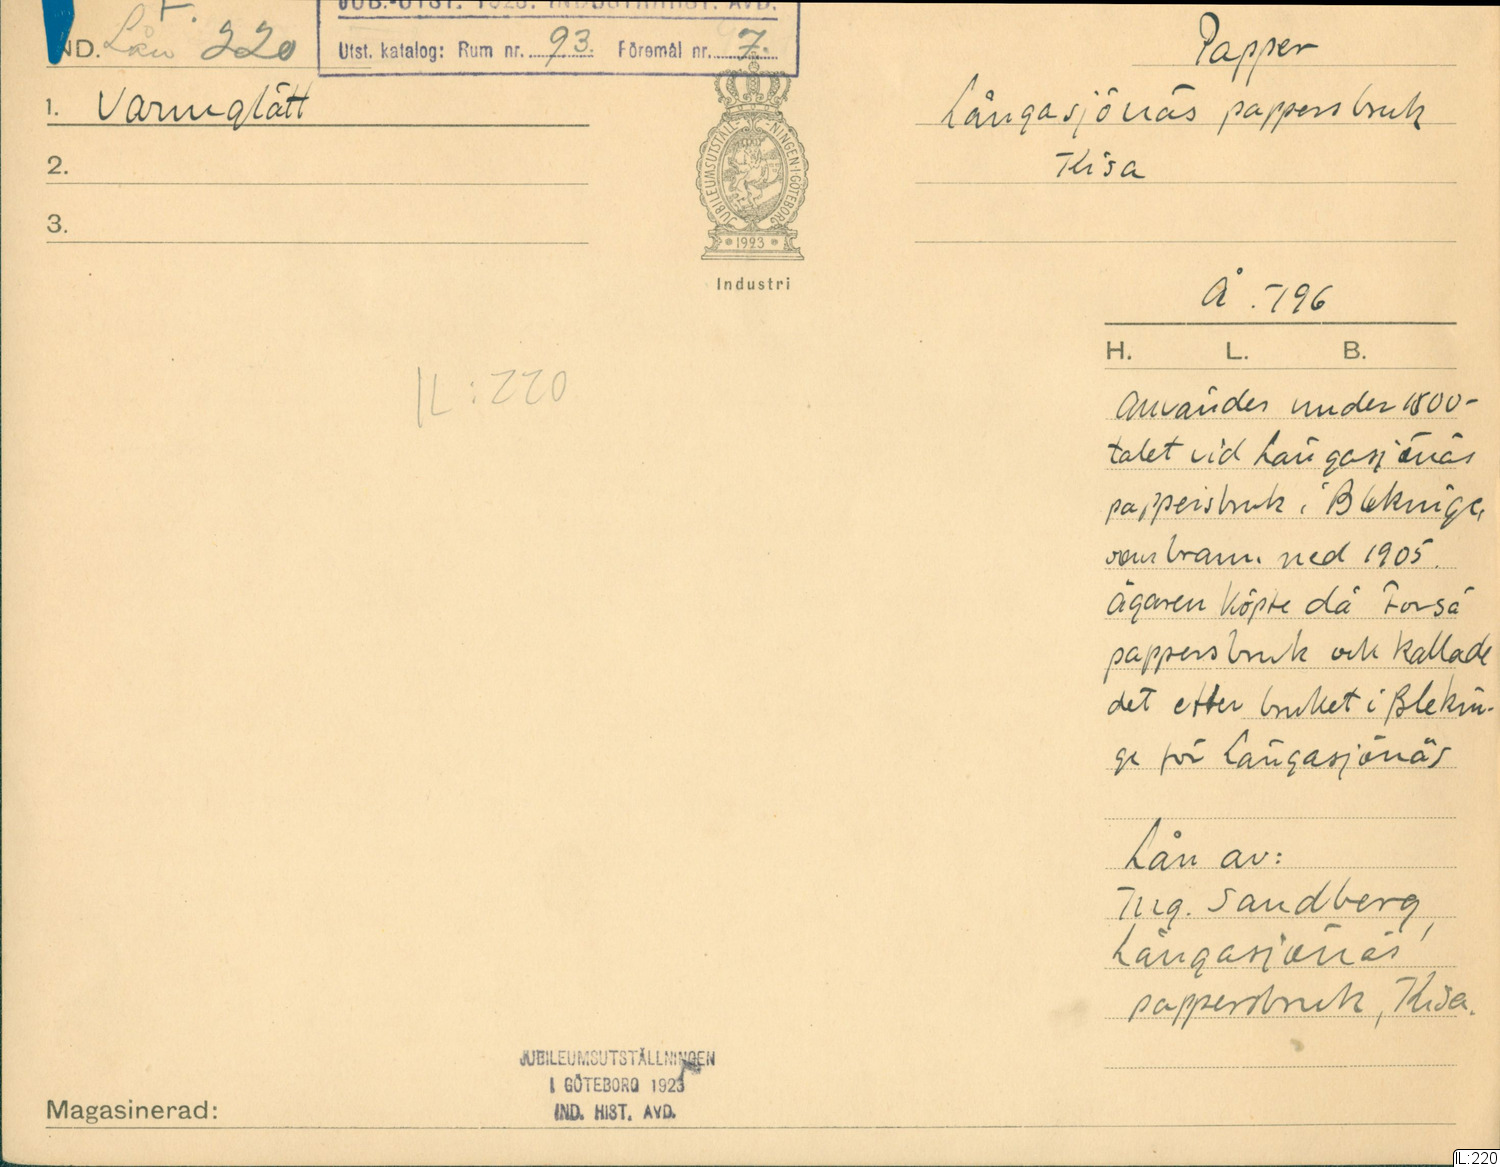 JUB.-UTST. 1923. INDUSTRIHIST. AVD.
IND. Lån 220
Utst. katalog: Rum nr. 93. Föremål nr. 7.
Papper
1. Varmglätt
Långasjönäs pappersbruk
2.
Kisa
3.
JUBILEUMSUTSTÄLLNINGEN I GÖTEBORG
1923
Industri
Å. 796
H. L. B.
IL:220
Användes under 1800-
talet vid Långasjönäs
pappersbruk i Blekinge,
som brann ned 1905.
Ägaren köpte då Forså
pappersbruk och kallade
det efter bruket i Blekin-
ge för Långasjönäs
Lån av:
Ing. Sandberg,
Långasjönäs
pappersbruk, Kisa.
JUBILEUMSUTSTÄLLNINGEN
I GÖTEBORG 1923
IND. HIST. AVD.
Magasinerad:
IL:220